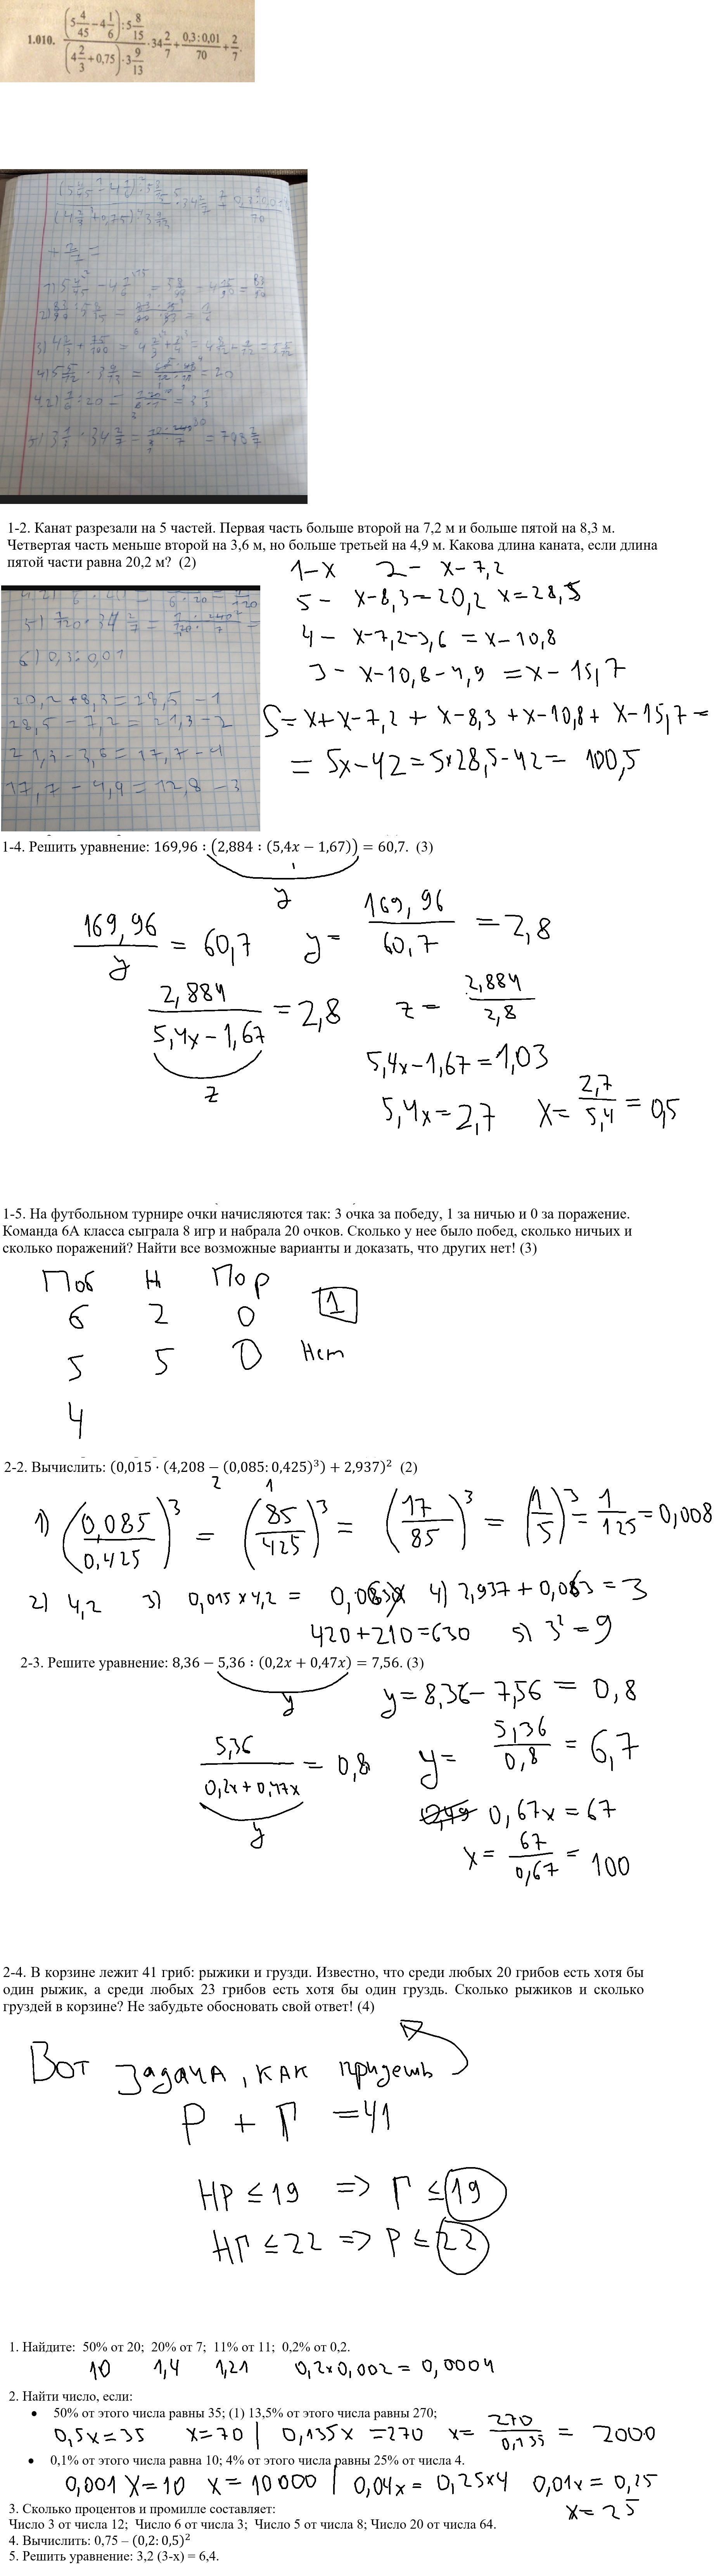 1.010. ((5 4/45 − 4 1/6) : 5 8/15) / ((4 2/3 + 0,75) · 3 9/13) · 34 2/7 + (0,3 : 0,01)/70 + 2/7.
20,2 + 8,3 = 28,5 − 1
28,5 − 7,2 = 21,3 − 2
21,3 − 3,6 = 17,7 − 4
17,7 − 4,9 = 12,8 − 3
1-2. Канат разрезали на 5 частей. Первая часть больше второй на 7,2 м и больше пятой на 8,3 м.
Четвертая часть меньше второй на 3,6 м, но больше третьей на 4,9 м. Какова длина каната, если длина
пятой части равна 20,2 м? (2)
1 – x 2 – x – 7,2
5 – x – 8,3 = 20,2 x = 28,5
4 – x – 7,2 – 3,6 = x – 10,8
3 – x – 10,8 – 4,9 = x – 15,7
S = x + x – 7,2 + x – 8,3 + x – 10,8 + x – 15,7 =
= 5x – 42 = 5 * 28,5 – 42 = 100,5
1-4. Решить уравнение: 169,96 : (2,884 : (5,4x − 1,67)) = 60,7. (3)
y
169,96/y = 60,7 y = 169,96/60,7 = 2,8
2,884/(5,4x − 1,67) = 2,8 z = 2,884/2,8
z
5,4x − 1,67 = 1,03
5,4x = 2,7 x = 2,7/5,4 = 0,5
1-5. На футбольном турнире очки начисляются так: 3 очка за победу, 1 за ничью и 0 за поражение.
Команда 6А класса сыграла 8 игр и набрала 20 очков. Сколько у нее было побед, сколько ничьих и
сколько поражений? Найти все возможные варианты и доказать, что других нет! (3)
Поб Н Пор
6 2 0 1
5 5 0 Нет
4
2-2. Вычислить: (0,015 · (4,208 − (0,085: 0,425)³) + 2,937)² (2)
2 1
1) (0,085/0,425)³ = (85/425)³ = (17/85)³ = (1/5)³ = 1/125 = 0,008
2) 4,2 3) 0,015 x 4,2 = 0,063 4) 2,937 + 0,063 = 3
420 + 210 = 630 5) 3² = 9
2-3. Решите уравнение: 8,36 − 5,36 : (0,2x + 0,47x) = 7,56. (3)
y y = 8,36 – 7,56 = 0,8
5,36/(0,2x + 0,47x) = 0,8 y = 5,36/0,8 = 6,7
y
0,67x = 67
x = 67/0,67 = 100
2-4. В корзине лежит 41 гриб: рыжики и грузди. Известно, что среди любых 20 грибов есть хотя бы
один рыжик, а среди любых 23 грибов есть хотя бы один груздь. Сколько рыжиков и сколько
груздей в корзине? Не забудьте обосновать свой ответ! (4)
Вот задача, как придешь
Р + Г = 41
НР ≤ 19 => Г ≤ 19
НГ ≤ 22 => Р ≤ 22
1. Найдите: 50% от 20; 20% от 7; 11% от 11; 0,2% от 0,2.
10 1,4 1,21 0,2 x 0,002 = 0,0004
2. Найти число, если:
• 50% от этого числа равны 35; (1) 13,5% от этого числа равны 270;
0,5x = 35 x = 70 | 0,135x = 270 x = 270/0,135 = 2000
• 0,1% от этого числа равна 10; 4% от этого числа равны 25% от числа 4.
0,001 x = 10 x = 10000 | 0,04x = 0,25 x 4 0,01x = 0,25
x = 25
3. Сколько процентов и промилле составляет:
Число 3 от числа 12; Число 6 от числа 3; Число 5 от числа 8; Число 20 от числа 64.
4. Вычислить: 0,75 – (0,2: 0,5)²
5. Решить уравнение: 3,2 (3-x) = 6,4.